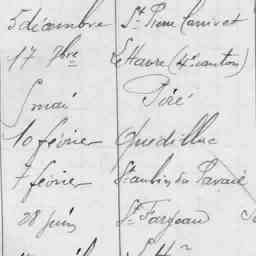 5 décembre St Pierre Canivet
17 7bre Le Havre (4e canton)
5 mai Piré
10 février Quédillac
7 février St aubin du Pavail
28 juin St Fargeau